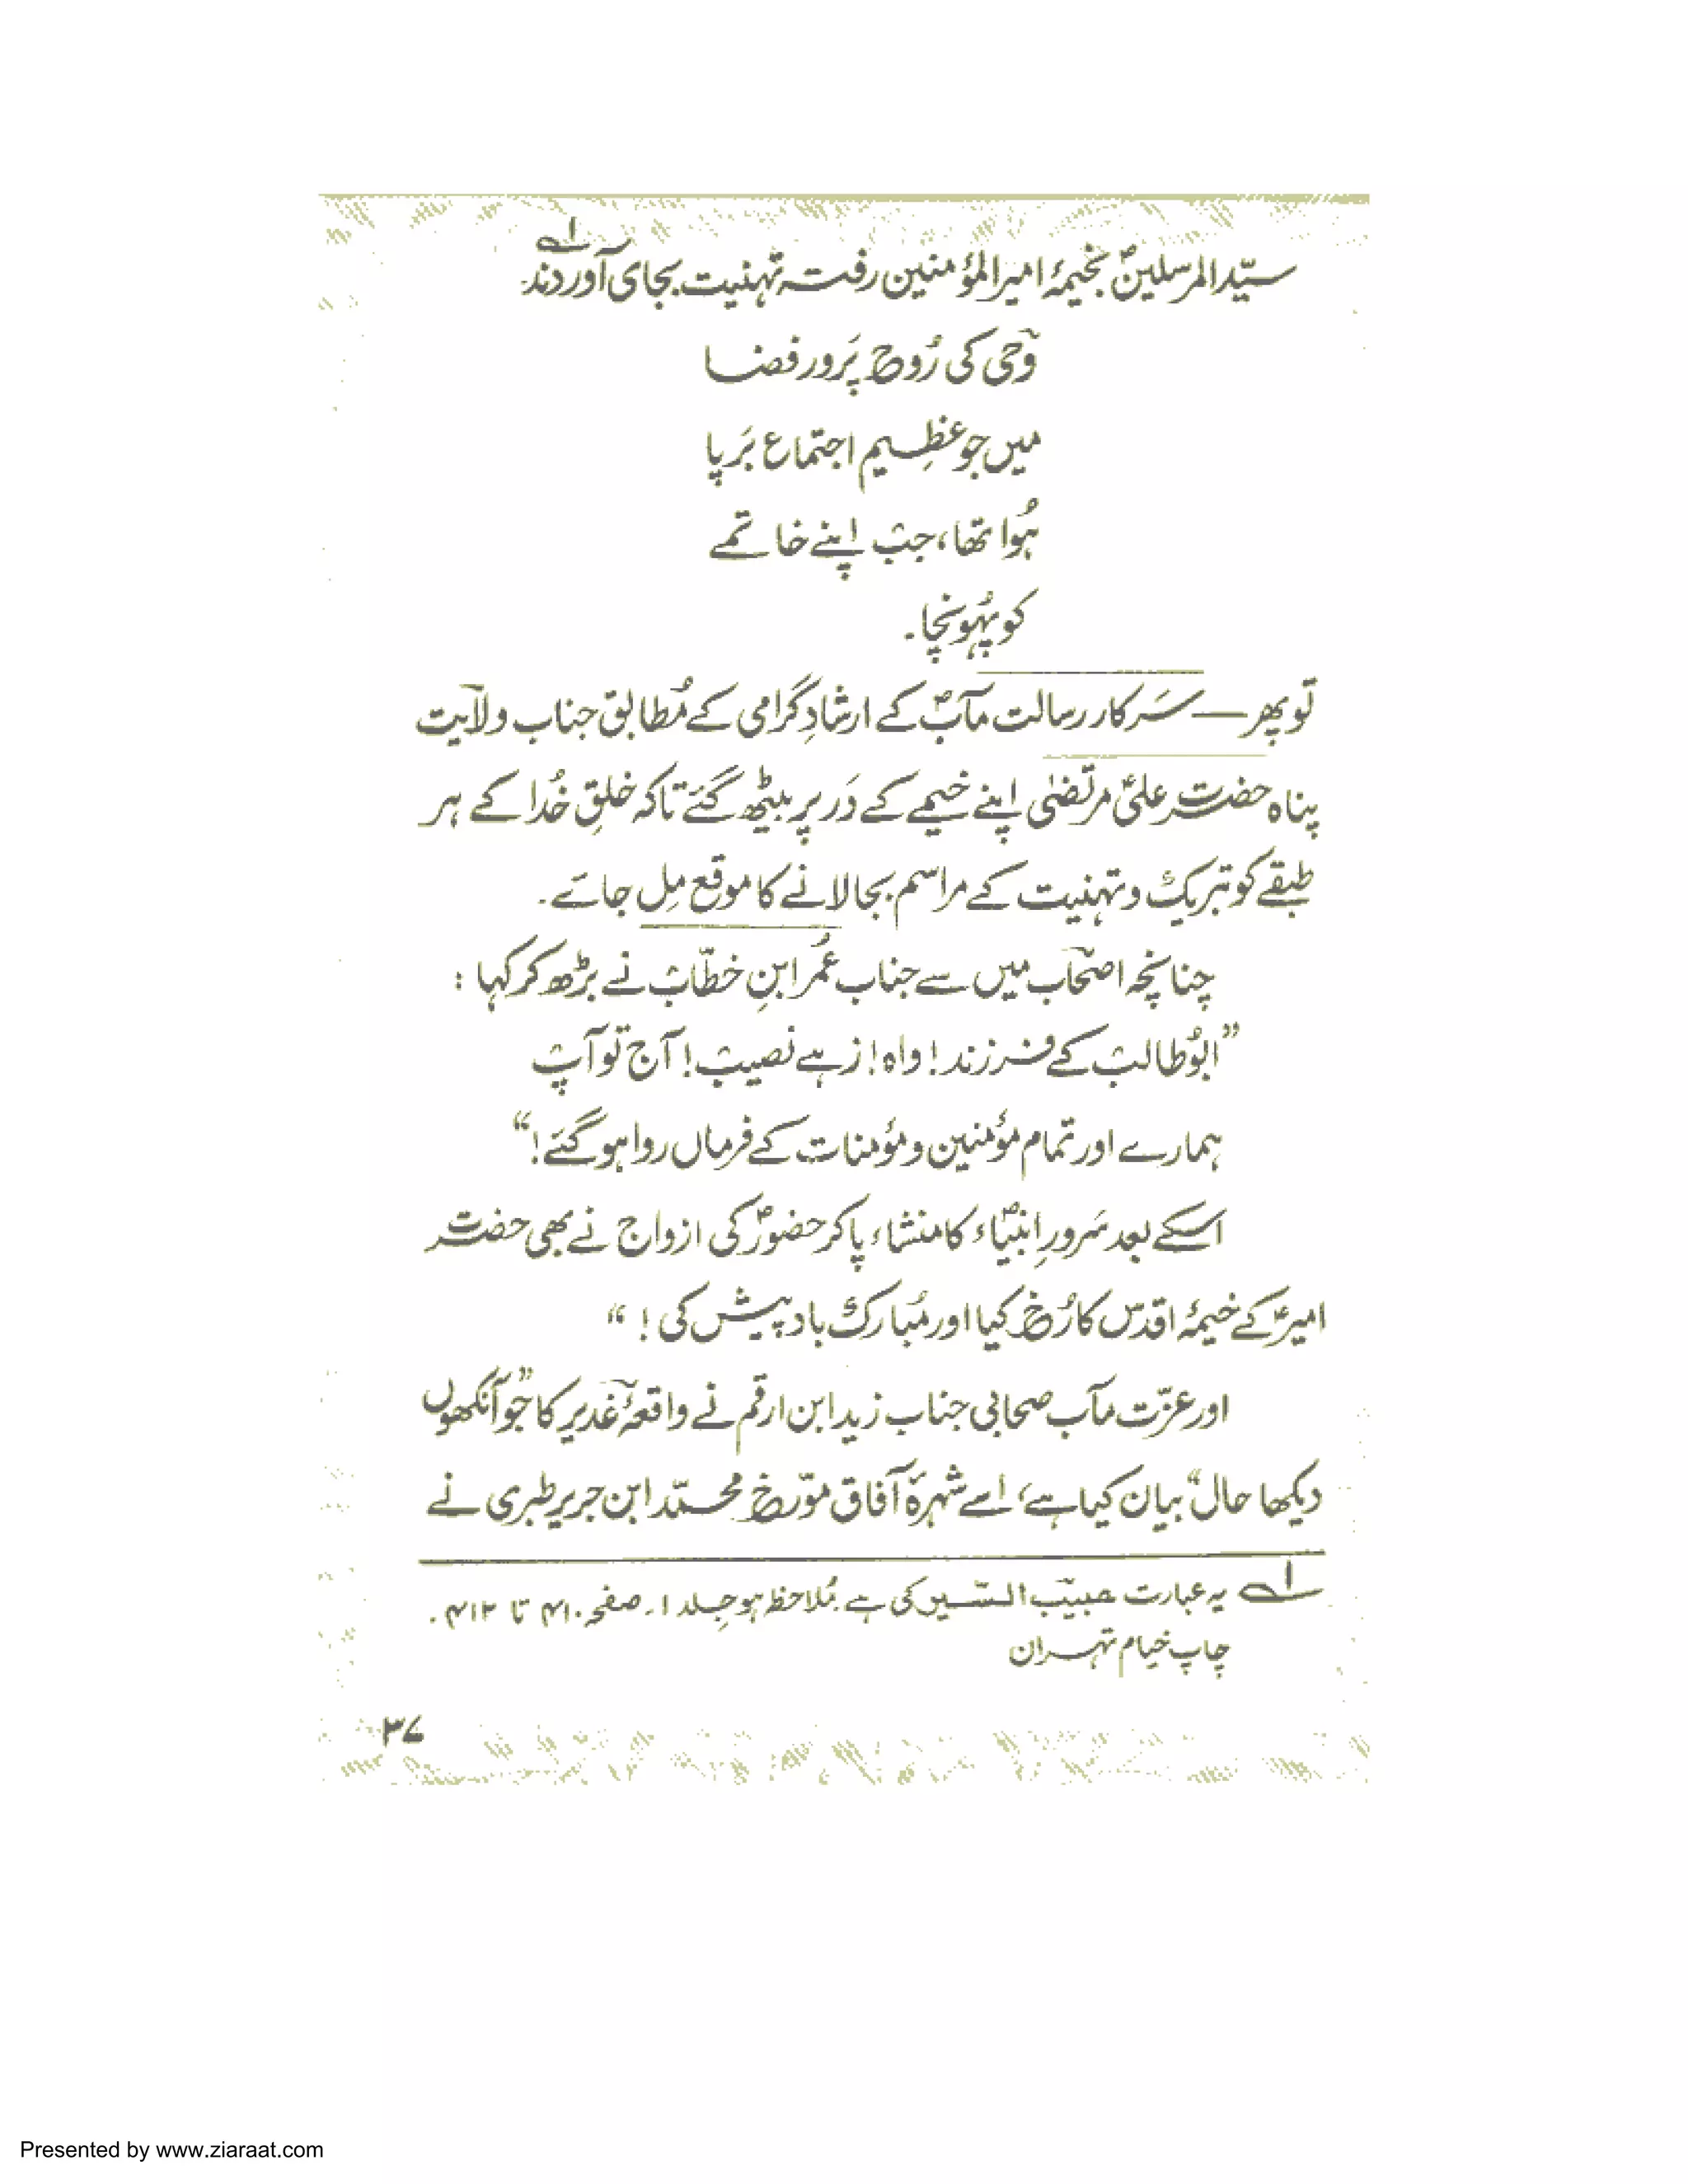 سیّدالمرسلینؐ بخیمۂ امیرالمؤمنین رفتہ تہنیت بجای آوردند۔ ؎۱
وحی کی رُوح پَرور فضا
میں جو عظِیم اجتماع بَرپا
ہُوا تھا، جب اپنے خاتمے
کو پہُونچا۔
تو پھر — سَرکار رسالت مآبؐ کے ارشادِ گرامی کے مُطابق جناب ولایت
پناہ حضرت علیؑ مرتضیٰ اپنے خیمے کے دَر پر بیٹھ گئے تاکہ خلقِ خُدا کے ہر
طبقے کو تبریک و تہنیت کے مراسم بجا لانے کا موقع مِل جائے۔
چنانچہ اصحاب میں سے جناب عُمر ابنِ خطّاب نے بڑھ کر کہا :
”ابُوطالب کے فرزند! واہ! زہے نصیب! آج تو آپ
ہمارے اور تمام مؤمنین و مؤمنات کے فرماں روا ہو گئے!“
اسکے بعد سَرورِ انبیاؐء کا منشاء پا کر حضورؐ کی ازواج نے بھی حضرت
امیرؑ کے خیمۂ اقدس کا رُخ کیا اور مُبارک باد پیش کی ! “
اور عزّت مآب صحابی جناب زید ابن ارقم نے واقعۂ غدیر کا ”جو آنکھوں
دیکھا حال“ بیان کیا ہے، اسے شہرۂ آفاق مورّخ محمّد ابن جریر طبری نے
؎۱ یہ عبارت حبیب السّیر کی ہے۔ مُلاحظہ ہو جِلد ۱۔ صفحہ ۴۱۰ تا ۴۱۲۔
چاپ خیام تہران
۳۷
Presented by www.ziaraat.com